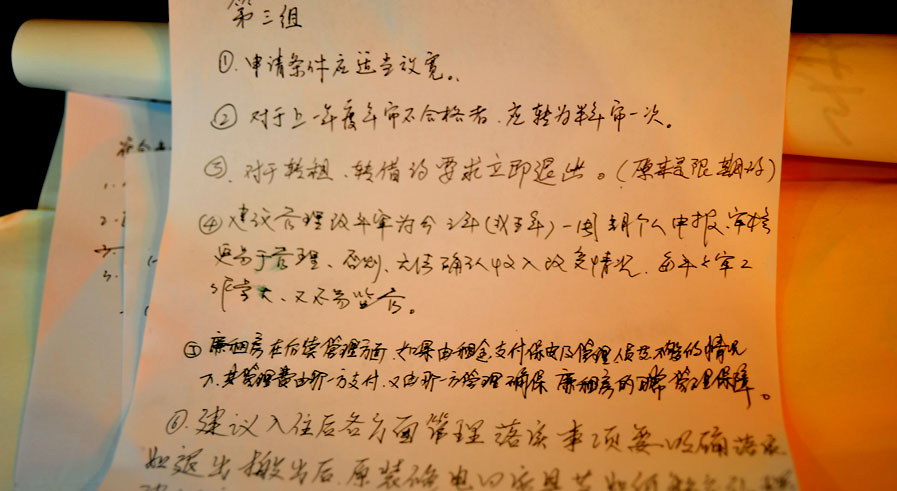 第三组
①.申请条件应适当放宽。
② 对于上一年度年审不合格者,应转为半年审一次。
③.对于转租、转借的要求立即退出。(原来是限期的)
④ 建议管理改年审为每2年(或三年)一周期个人申报、审核
更易于管理、否则、无法确认收入改变情况,每年年审工
作量大、又不易监管。
⑤ 廉租房在后续管理方面,如果由租金支付保安及管理人员不够的情况
下,其管理费由哪一方支付,又由哪一方管理确保廉租房的正常管理保障。
⑥.建议入住后各方面管理落实事项要明确落实
如退出搬出后,原装修电